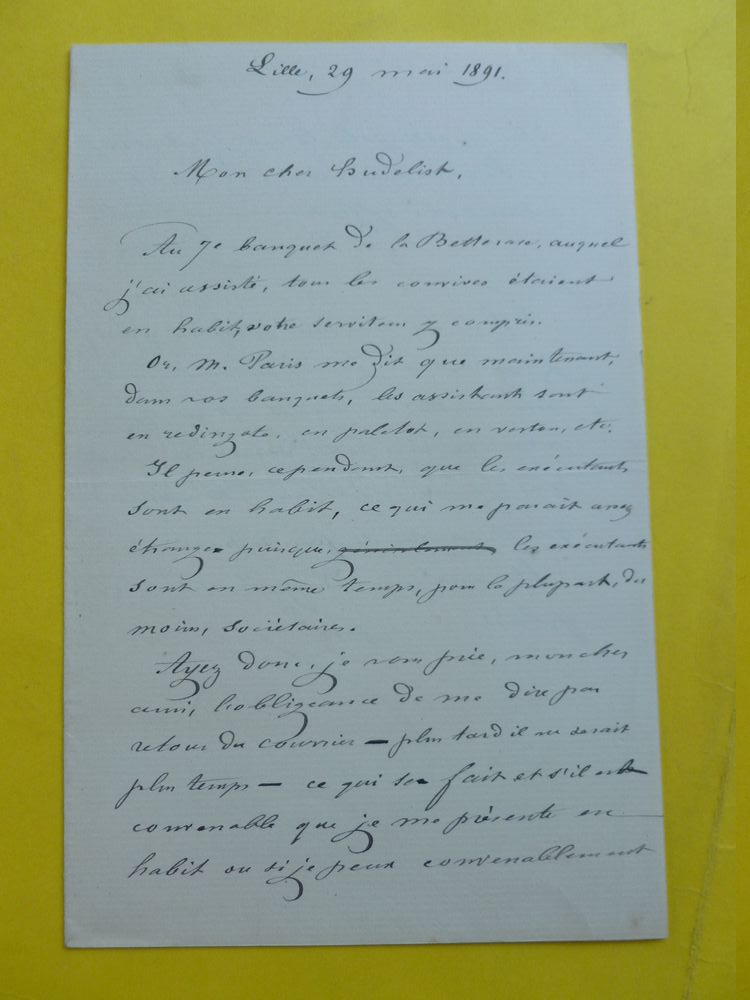 Lille, 29 mai 1891.
Mon cher Sudelist,
Au 7e banquet de la Betterave, auquel
j'ai assisté, tous les convives étaient
en habit, votre serviteur y compris.
Or, M. Paris me dit que maintenant,
dans vos banquets, les assistants sont
en redingote, en paletot, en veston, etc.
Il pense, cependant, que les exécutants
sont en habit, ce qui me paraît assez
étrange puisque, généralement, les exécutants
sont en même temps, pour la plupart, du
moins, sociétaires.
Ayez donc, je vous prie, mon cher
ami, l'obligeance de me dire par
retour du courrier — plus tard il ne serait
plus temps — ce qui se fait et s'il est
convenable que je me présente en
habit ou si je peux convenablement